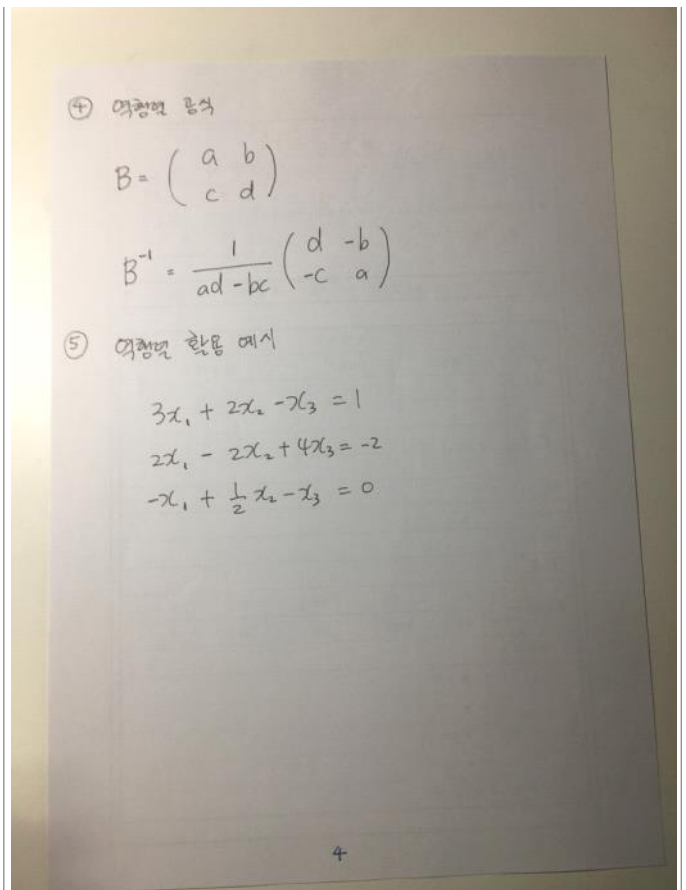 ④ 역행렬 공식
B = ( a b
c d )
B⁻¹ = 1/(ad - bc) ( d -b
-c a )
⑤ 역행렬 활용 예시
3x₁ + 2x₂ - x₃ = 1
2x₁ - 2x₂ + 4x₃ = -2
-x₁ + 1/2 x₂ - x₃ = 0
4